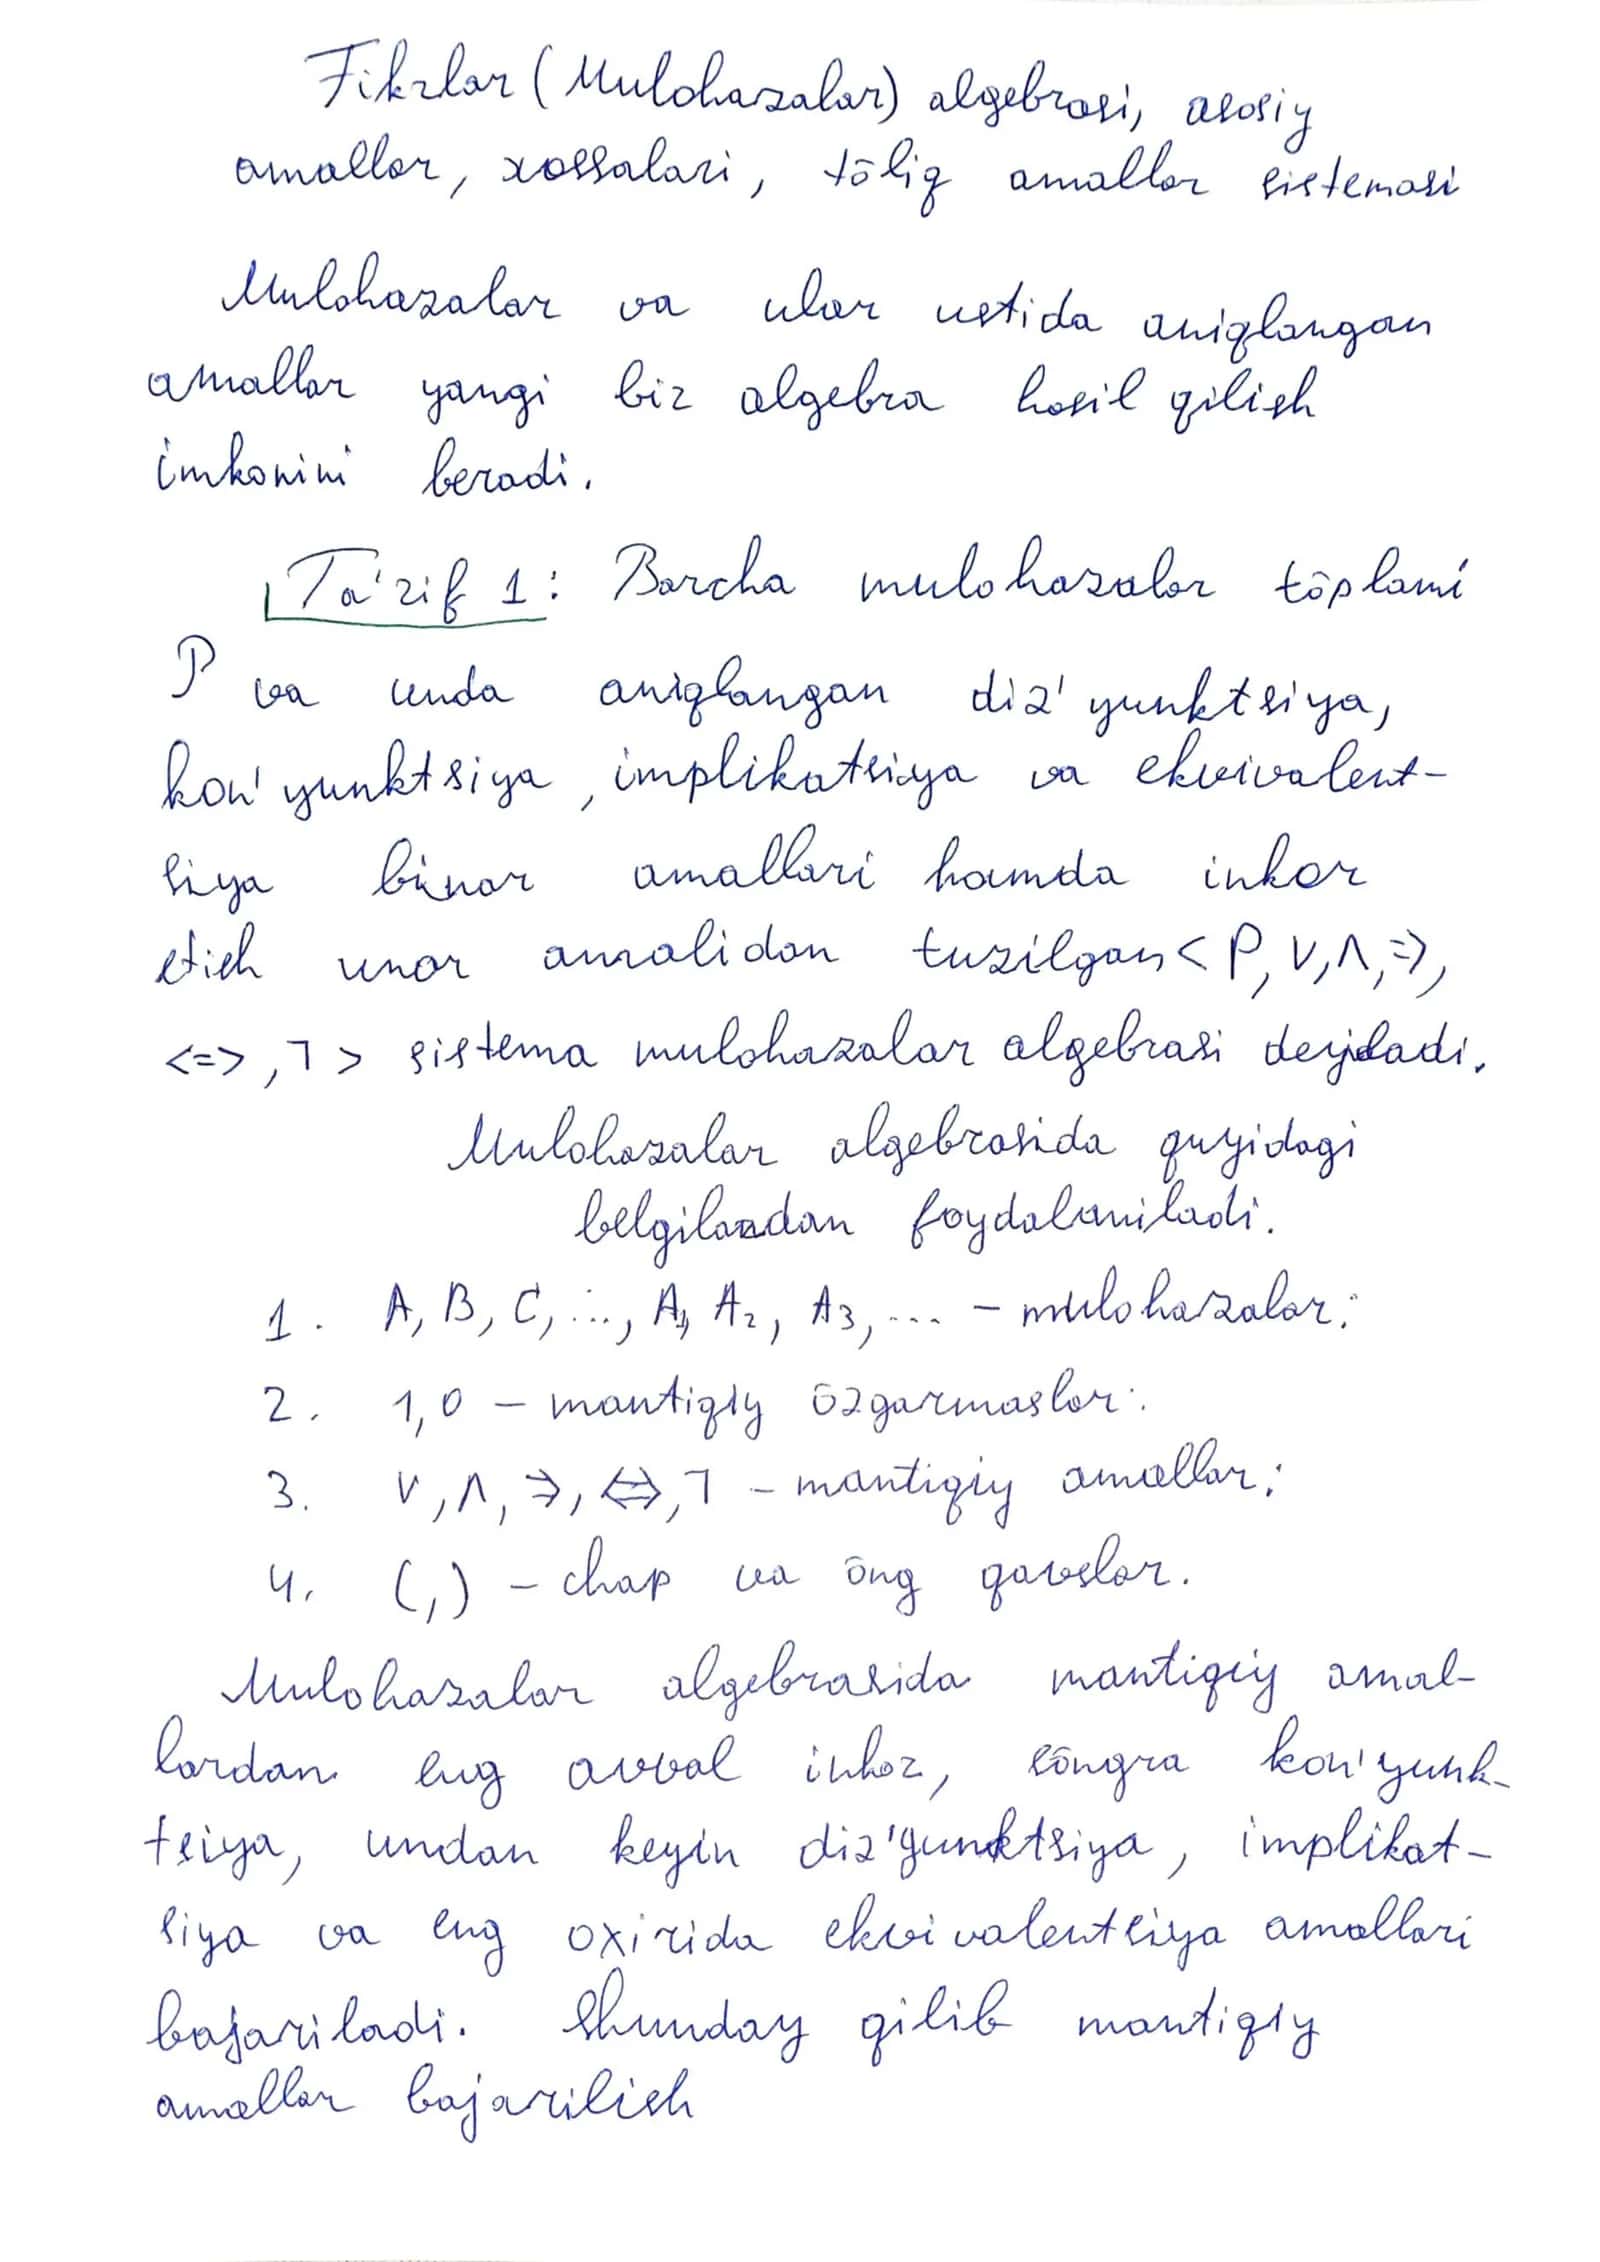 Fikrlar (Mulohazalar) algebrasi, asosiy
amallar, xossalari, tōliq amallar sistemasi
Mulohazalar va ular ustida aniqlangan
amallar yangi bir algebra hosil qilish
imkonini beradi.
Ta'rif 1: Barcha mulohazalar tōplami
P va unda aniqlangan diz'yunktsiya,
kon'yunktsiya, implikatsiya va ekvivalent-
siya binar amallari hamda inkor
etish unar amalidan tuzilgan < P, ∨, ∧, =>,
<=>, ⌐ > sistema mulohazalar algebrasi deyiladi.
Mulohazalar algebrasida quyidagi
belgilardan foydalaniladi.
1. A, B, C, ..., A₁, A₂, A₃, ... – mulohazalar;
2. 1, 0 – mantiqiy ōzgarmaslar;
3. ∨, ∧, ⇒, ⇔, ⌐ – mantiqiy amallar;
4. (,) – chap va ōng qavslar.
Mulohazalar algebrasida mantiqiy amal-
lardan eng avval inkor, sōngra kon'yunk-
tsiya, undan keyin diz'yunktsiya, implikat-
siya va eng oxirida ekvivalentsiya amallari
bajariladi. Shunday qilib mantiqiy
amallar bajarilish